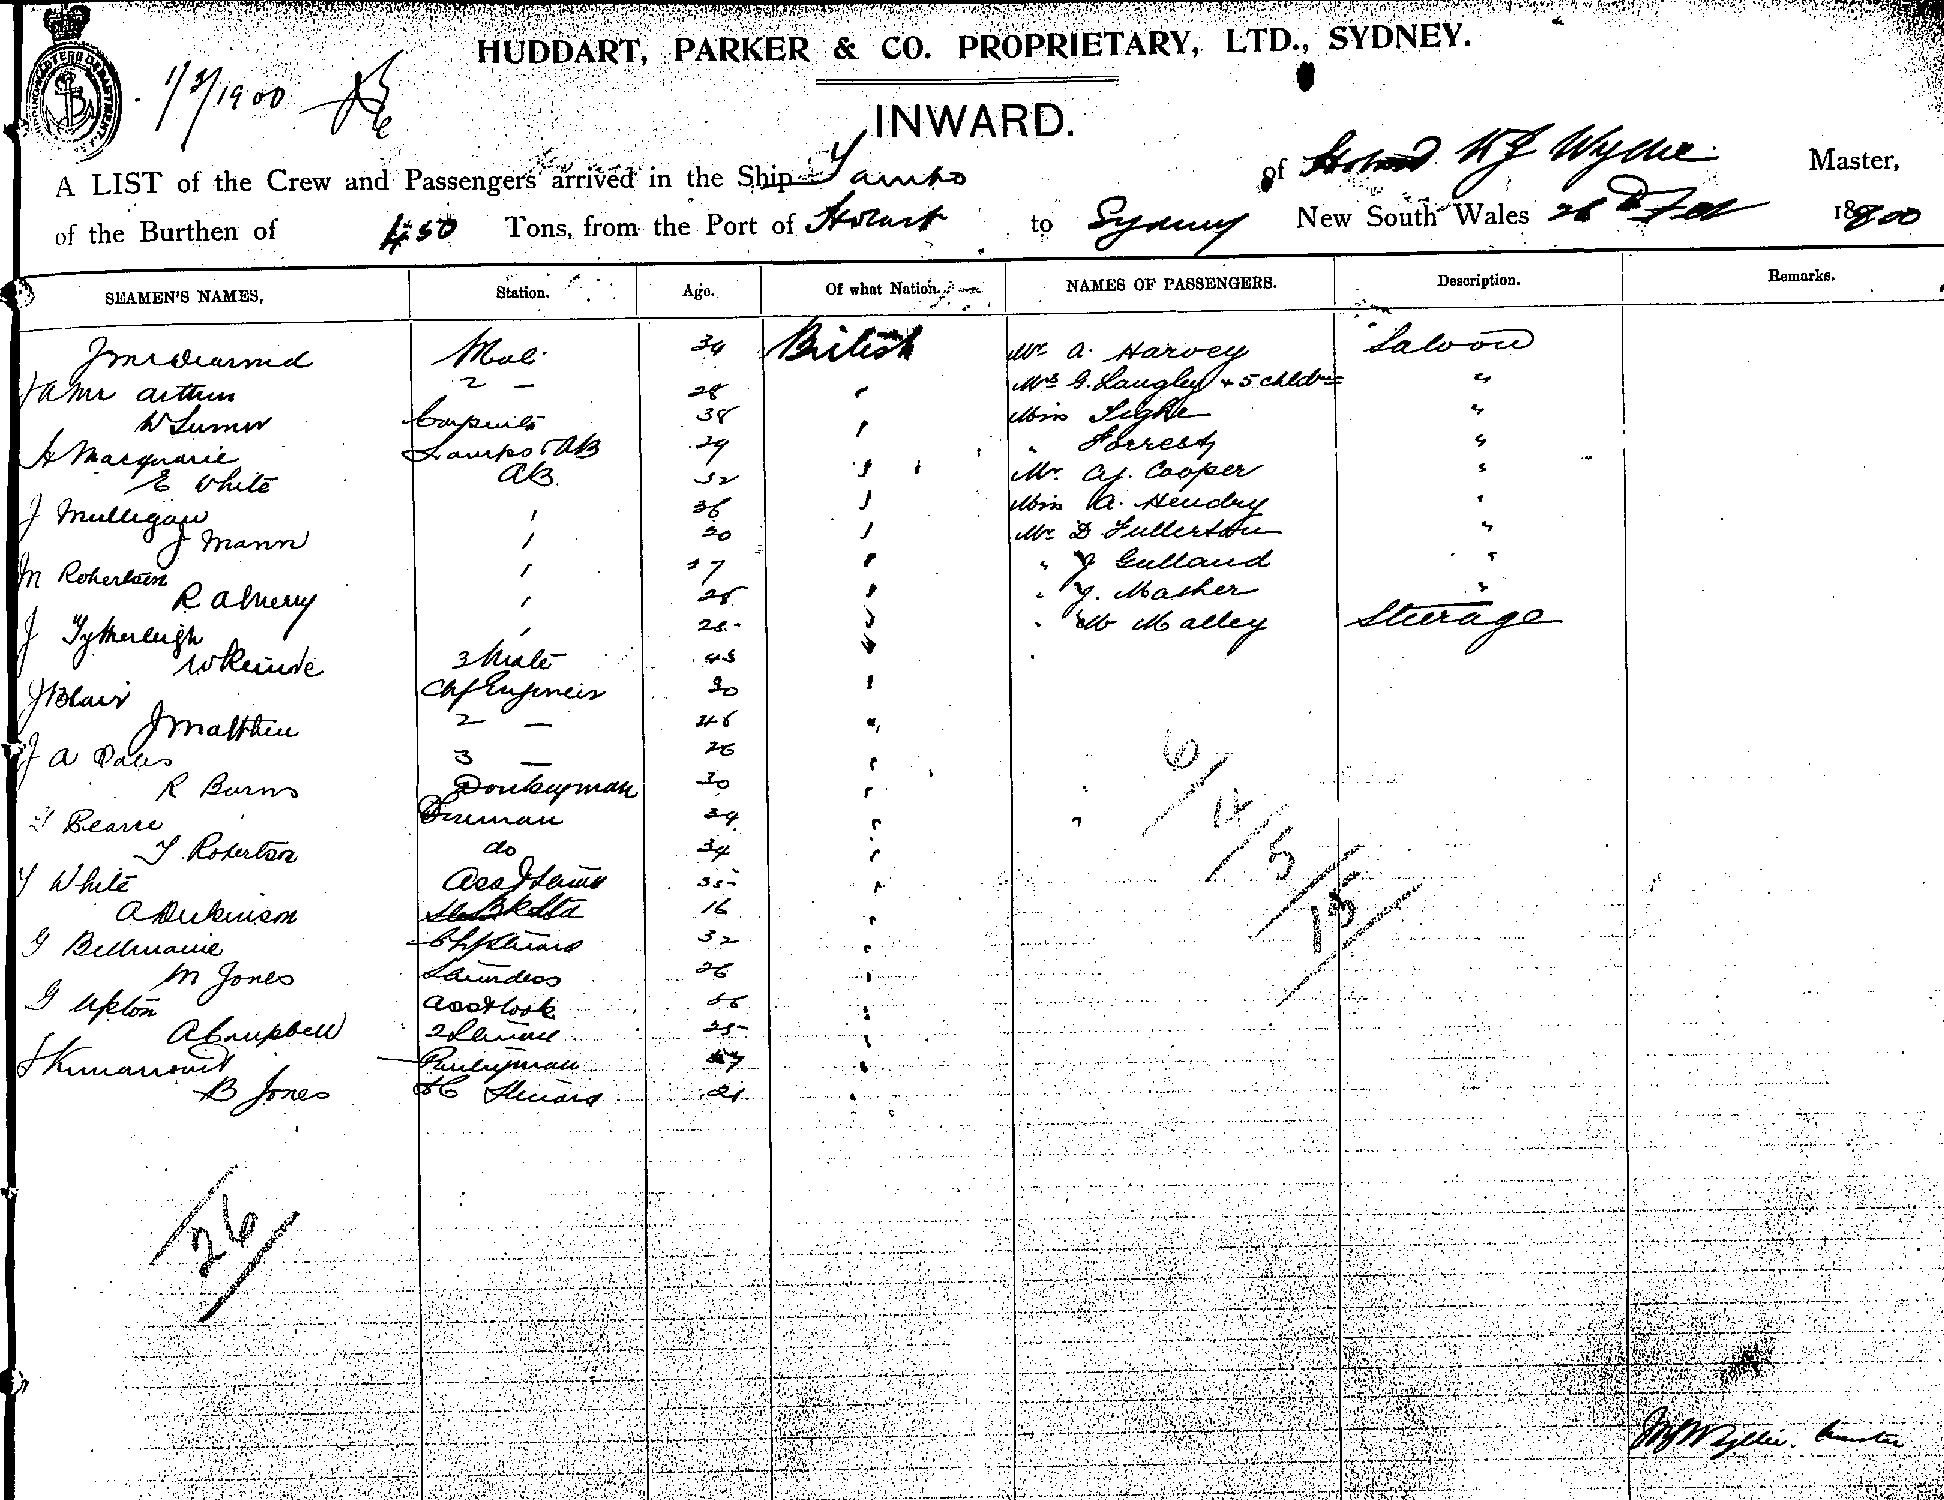 HUDDART, PARKER & CO. PROPRIETARY, LTD., SYDNEY.
1/3/1900
INWARD.
A LIST of the Crew and Passengers arrived in the Ship Yambo of Hobart W J Wyllie Master,
of the Burthen of 450 Tons, from the Port of Hobart to Sydney New South Wales 26th Feb 1900
SEAMEN'S NAMES, Station. Age. Of what Nation. NAMES OF PASSENGERS. Description. Remarks.
J McDearmid 34 British Mr A. Harvey Saloon
A McArthur 2 — 28 " Mrs G. Langley + 5 childn "
38 " Miss Tighe "
H Macquarie Lamps & AB 29 " " Forrest "
E White AB. 32 " Mr A.J. Cooper "
J Mulligan " 36 " Miss A. Hendry "
J Mann " 20 " Mr D Fullerton "
M Robertson " " " J Gulland "
R A Merry " 28 " " J. Mather "
J Tytherleigh " " " W Malley Steerage
3 Mate 43 "
J Blair Chf Engineer 30 "
J Matthew 2 — 46 "
J A 3 — 26 "
R Burns Donkeyman 30 "
Bearre Fireman 29 "
T Robertson do 34 "
T White 35 "
A Dickinson 16 "
G Bellmaine Chf Steward 32 "
M Jones Stewardess 26 "
G Upton Asst Cook "
A Campbell 2 Steward 25 "
Pantryman "
B Jones Steward 21 "
6
4
5
15
26
W J Wyllie. Master